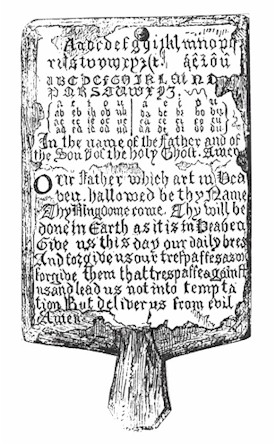 Aabcdefghijklmnopq
rſstuvwxyz&. aeiou
ABCDEFGHIKLMNO
PQRSTUWXYZ.
a e i o u a e i o u
ab eb ib ob ub ba be bi bo bu
ac ec ic oc uc ca ce ci co cu
ad ed id od ud da de di do du
In the name of the Father and of
the Son & of the holy Ghost. Amen
Our Father which art in Hea
ven, hallowed be thy Name
Thy Kingdome come. Thy will be
done in Earth as it is in Heaven
Give us this day our daily bread
And forgive us our treſpaſſes as we
forgive them that treſpaſſe againſt
us and lead us not into tempta
tion But deliver us from evil
Amen